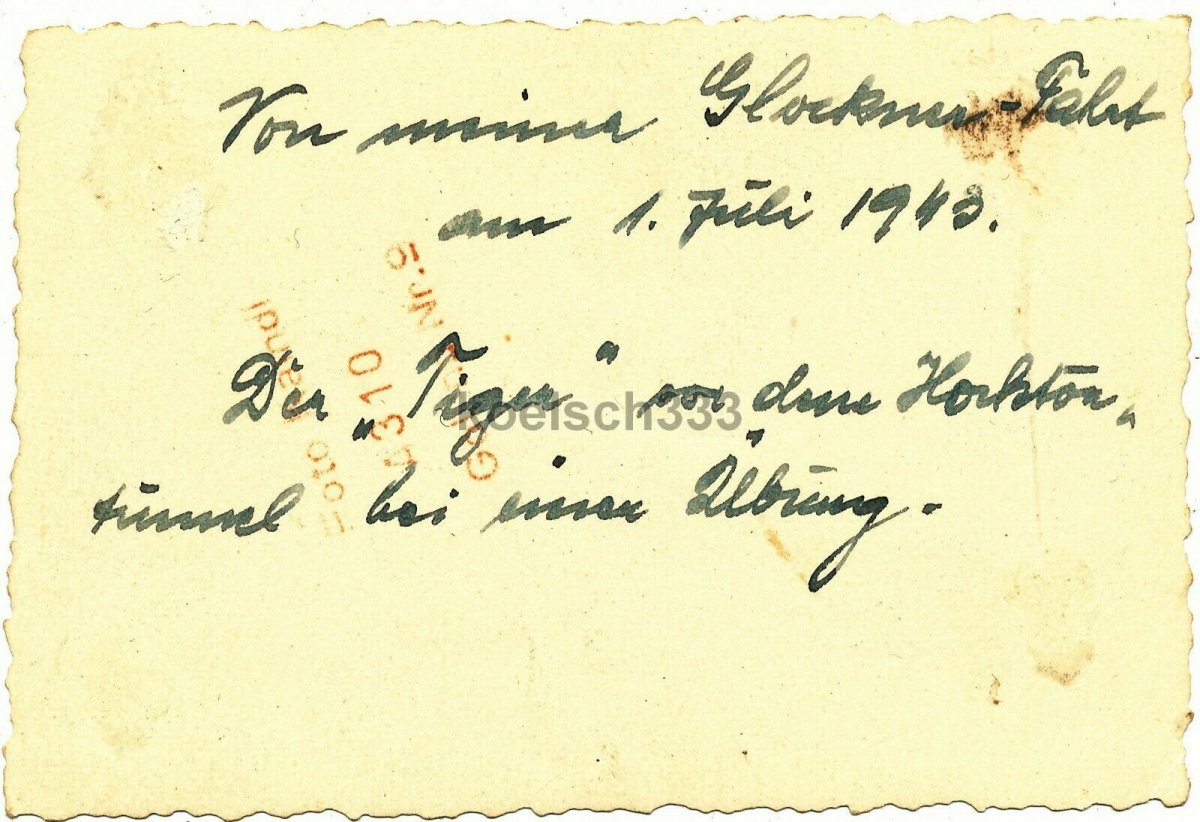 Von meiner Glockner-Fahrt
am 1. Juli 1943.
Der „Tiger" vor dem Hochtor-
tunnel bei einer Übung.
Foto
4310
Nr. 5
koelsch333